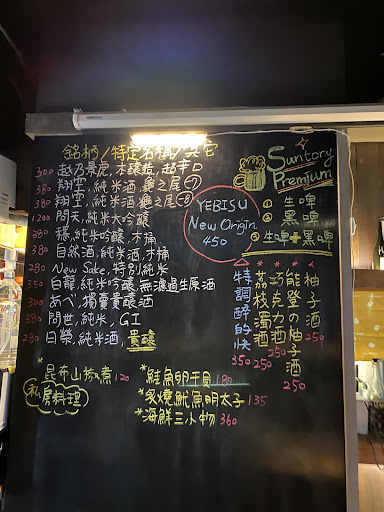 銘柄/特定名稱/其它
300 越乃景虎,本釀造,超辛口
380 翔空,純米酒,龜之尾㊀
380 翔空,純米酒,龜之尾
1200 問天,純米大吟釀
380 環,純米吟釀,木桶
380 自然酒,純米酒,木桶
280 New Sake,特別純米
350 白龍,純米吟釀,無濾過生原酒
300 あべ,獨賣貴釀酒
380 問世,純米,GI
280 日榮,純米酒,貴釀
YEBISU
New Origin
450
Suntory
Premium
① 生啤
② 黑啤
③ 生啤+黑啤
柚子酒 250
能登の柚子酒 250
巧克力酒 250
荔枝濁酒 250
特調醉的快 350
*昆布山椒煮 120
私房料理
*鮭魚卵干貝 180
*炙燒魷魚明太子 135
*海鮮三小物 360